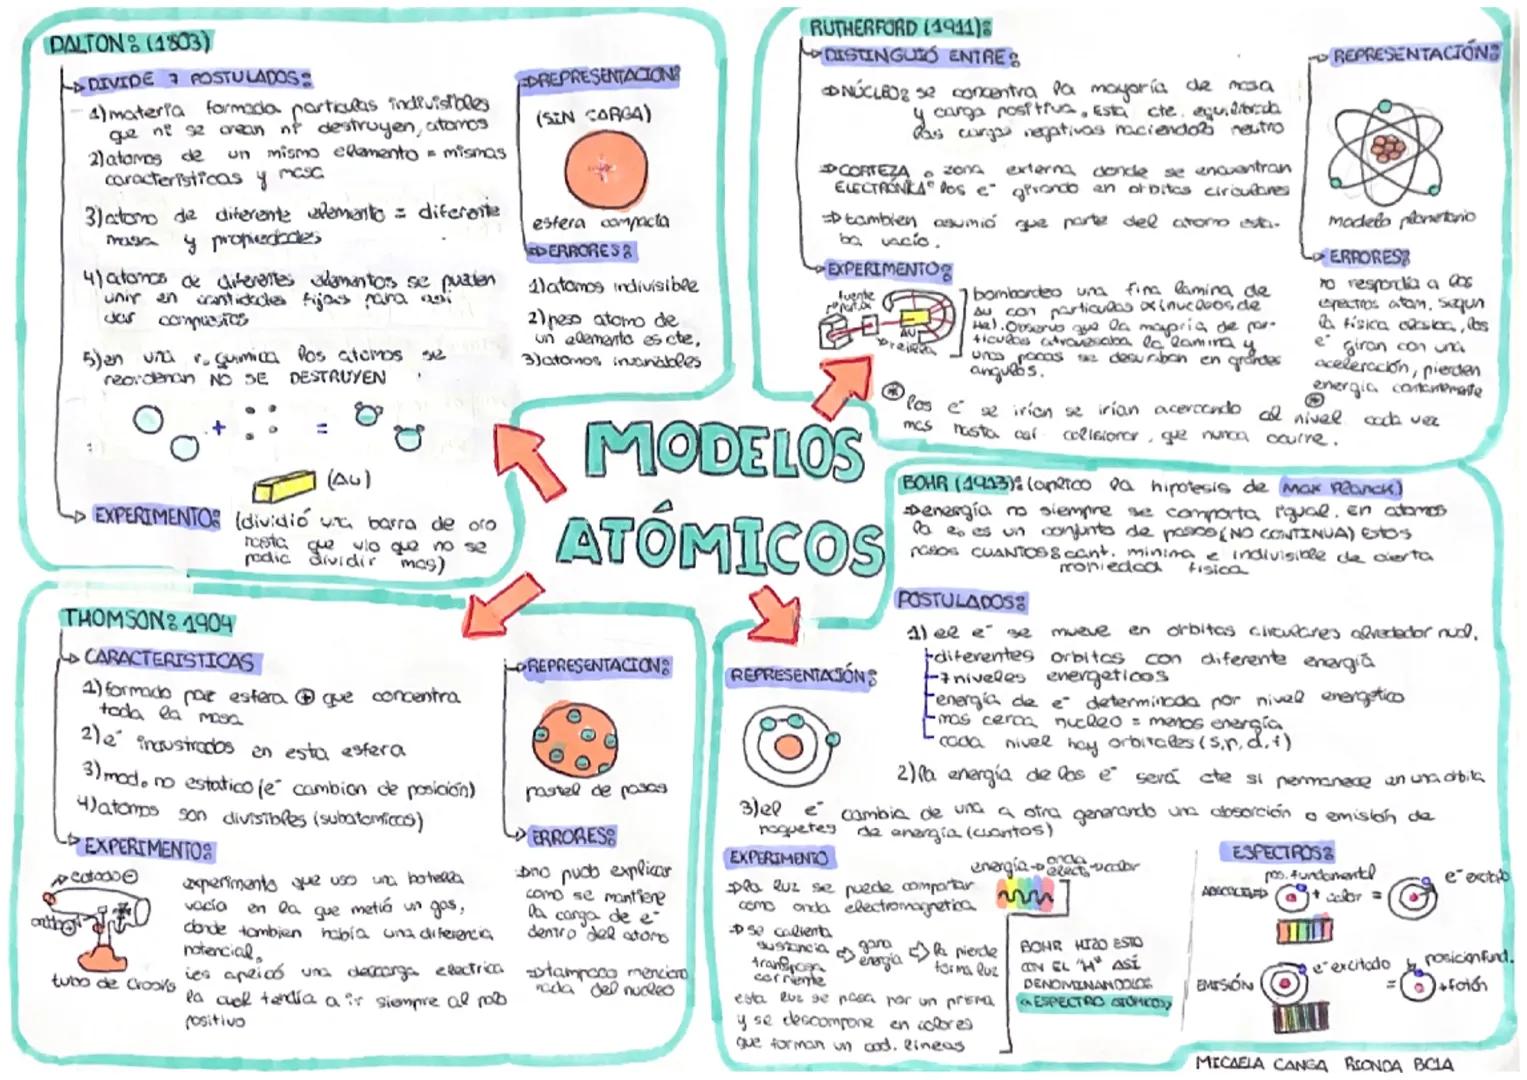 DALTON: (1803)
DIVIDE 7 POSTULADOS:
1) materia formada partículas indivisibles
que ni se crean ni destruyen, atomos
2) atomos de un mismo elemento = mismas
características y masa
3) atomo de diferente elemento = diferente
masa y propiedades
4) atomos de diferentes elementos se pueden
unir en cantidades fijas para así
dar compuestos
5) en una r. química los atomos se
reordenan NO SE DESTRUYEN
+ =
(Au)
EXPERIMENTO: (dividió una barra de oro
hasta que vio que no se
podía dividir mas)
REPRESENTACION:
(SIN CARGA)
esfera compacta
ERRORES:
1) atomos indivisible
2) peso atomo de
un elemento es cte.
3) atomos invariables
RUTHERFORD (1911):
DISTINGUIÓ ENTRE:
NÚCLEO: se concentra la mayoría de masa
y carga positiva. Esta cte. equilibrada
las cargas negativas haciendola neutro
CORTEZA : zona externa donde se encuentran
ELECTRÓNICA los e⁻ girando en orbitas circulares
tambien asumió que parte del atomo esta-
ba vacío.
EXPERIMENTO:
fuente
part. α
Au
rejilla
bombardeo una fina lamina de
Au con particulas α (nucleos de
He). Observo que la mayoria de par-
ticulas atravesaba la lamina y
unas pocas se desviaban en grandes
angulos.
REPRESENTACIÓN:
modelo planetario
ERRORES:
no respondía a los
espectros atom. Segun
la física clasica, los
e⁻ giran con una
aceleración, pierden
energía constantemente
los e⁻ se irían se irían acercando al nivel cada vez
mas hasta así colisionar, que nunca ocurre.
MODELOS
ATÓMICOS
THOMSON: 1904
CARACTERISTICAS
1) formado por esfera ⊕ que concentra
toda la masa
2) e⁻ incustrados en esta esfera
3) mod. no estatico (e⁻ cambian de posición)
4) atomos son divisibles (subatomicas)
EXPERIMENTO:
catodo ⊖
tubo de Crooks
experimento que uso una botella
vacía en la que metió un gas,
donde tambien había una diferencia
potencial,
les aplicó una descarga electrica
la cual tendía a ir siempre al polo
positivo
REPRESENTACION:
pastel de pasas
ERRORES:
no pudo explicar
como se mantiene
la carga de e⁻
dentro del atomo
tampoco menciono
nada del nucleo
BOHR (1913): (aplico la hipotesis de Max Planck)
energía no siempre se comporta igual. En atomos
la e. es un conjunto de pasos (NO CONTINUA) Estos
pasos CUANTOS: cant. minima e indivisible de cierta
física
POSTULADOS:
1) el e⁻ se mueve en orbitas circulares alrededor nucl.
diferentes orbitas con diferente energía
7 niveles energeticos
energía de e⁻ determinada por nivel energetico
mas cerca nucleo = menos energía
cada nivel hay orbitales (s, p, d, f)
2) la energía de los e⁻ será cte si permanece en una orbita
3) el e⁻ cambia de una a otra generando una absorción o emisión de
paquetes de energía (cuantos)
REPRESENTACIÓN:
EXPERIMENTO
la luz se puede comportar
como onda electromagnetica
energía → onda elect. → color
se calienta
sustancia
transpasa
corriente
gana
energía
la pierde
forma luz
esta luz se pasa por un prisma
y se descompone en colores
que forman un cod. lineas
BOHR HIZO ESTO
CON EL "H" ASÍ
DENOMINANDOLOS
ESPECTRO ATOMICOS
ESPECTROS:
pos. fundamental
+ calor =
e⁻ excitado
EMISIÓN
e⁻ excitado
posición fund.
= + fotón
MICAELA CANGA RIONDA BC1A